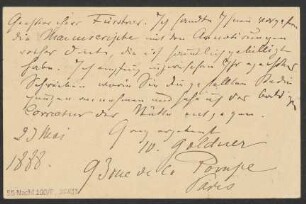 Geehrter Herr Fürstner. Ich sandte Ihnen vorgestern
die Manuscripte mit den Annotirungen
die ich sämmtlich gebilligt
habe. Ich empfing inzwischen Ihr geehrtes
Schreiben worin Sie die gestellten Bedin
gungen annehmen und sehe ich der baldigen
Correctur der Stücke entgegen.
23 Mai Ganz ergebenst
W. Goldner
1888. 93 rue de la Pompe
Paris